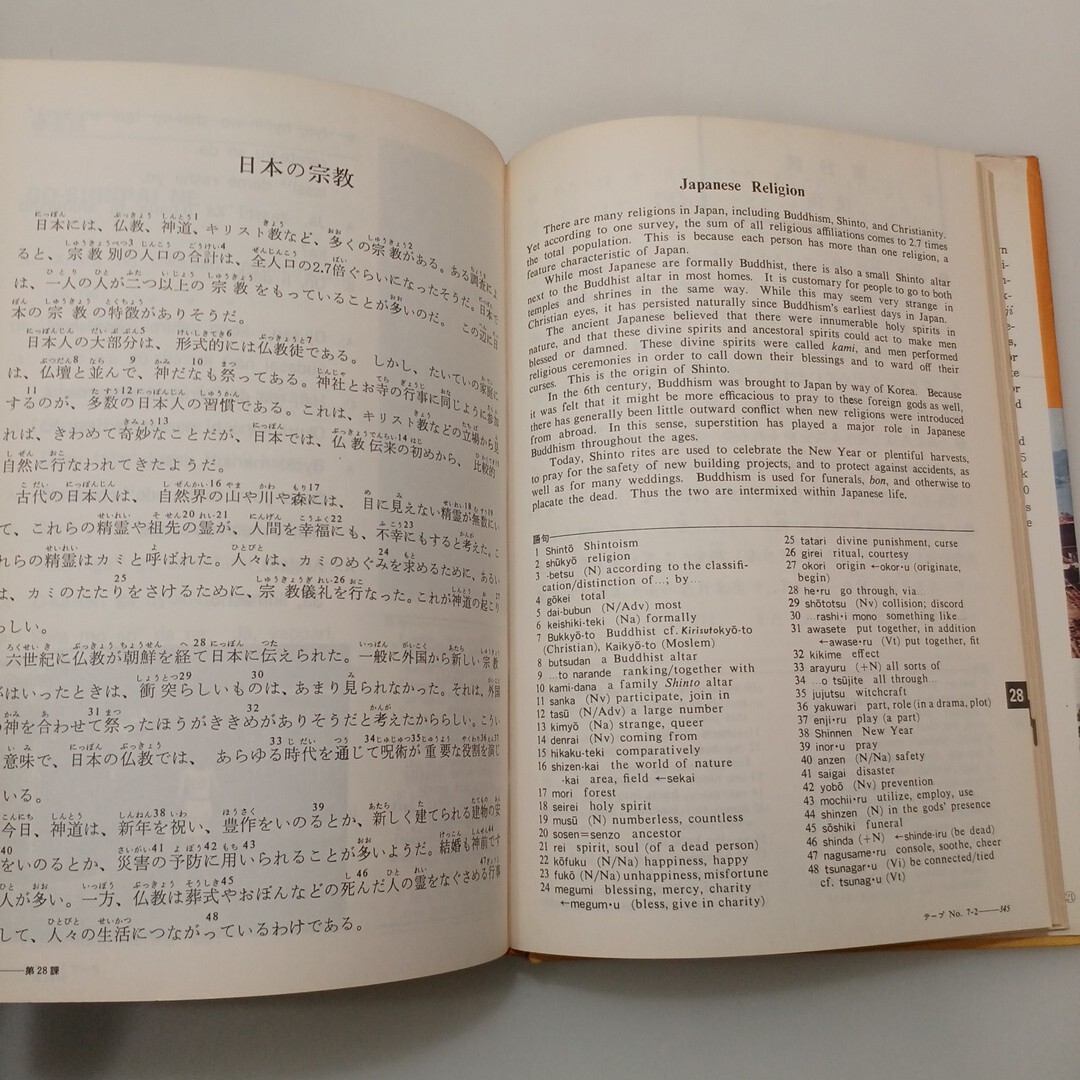 日本の宗教
日本には、仏教、神道1、キリスト教など、多くの宗教2がある。ある調査によ
ると、宗教別3の人口の合計4は、全人口の2.7倍ぐらいになったそうだ。日本で
は、一人の人が二つ以上の宗教をもっていることが多いのだ。この辺に日
本の宗教の特徴がありそうだ。
日本人の大部分5は、形式的6には仏教徒7である。しかし、たいていの家庭に
は、仏壇8と並んで9、神だな10も祭ってある。神社とお寺の行事に同じように参加11
するのが、多数12の日本人の習慣である。これは、キリスト教などの立場から見
れば、きわめて奇妙13なことだが、日本では、仏教伝来14の初めから、比較的15
自然に行なわれてきたようだ。
古代の日本人は、自然界16の山や川や森17には、目に見えない精霊18が無数19にい
て、これらの精霊や祖先20の霊21が、人間を幸福22にも、不幸23にもすると考えた。こ
れらの精霊はカミと呼ばれた。人々は、カミのめぐみ24を求めるために、あるい
は、カミのたたり25をさけるために、宗教儀礼26を行なった。これが神道の起こり27
らしい。
六世紀に仏教が朝鮮を経て28日本に伝えられた。一般に外国から新しい宗教
がはいったときは、衝突29らしいもの30は、あまり見られなかった。それは、外国
の神を合わせて31祭ったほうがききめ32がありそうだと考えたかららしい。こうい
意味で、日本の仏教では、あらゆる33時代を通じて34呪術35が重要な役割36を演じ37
いる。
今日、神道は、新年38を祝い、豊作をいのる39とか、新しく建てられる建物の安40
をいのるとか、災害41の予防42に用いられる43ことが多いようだ。結婚も神前44です
人が多い。一方、仏教は葬式45やおぼんなどの死んだ46人の霊をなぐさめる47行事
して、人々の生活につながっている48わけである。
第28課
Japanese Religion
There are many religions in Japan, including Buddhism, Shinto, and Christianity.
Yet according to one survey, the sum of all religious affiliations comes to 2.7 times
the total population. This is because each person has more than one religion, a
feature characteristic of Japan.
While most Japanese are formally Buddhist, there is also a small Shinto altar
next to the Buddhist altar in most homes. It is customary for people to go to both
temples and shrines in the same way. While this may seem very strange in
Christian eyes, it has persisted naturally since Buddhism's earliest days in Japan.
The ancient Japanese believed that there were innumerable holy spirits in
nature, and that these divine spirits and ancestoral spirits could act to make men
blessed or damned. These divine spirits were called kami, and men performed
religious ceremonies in order to call down their blessings and to ward off their
curses. This is the origin of Shinto.
In the 6th century, Buddhism was brought to Japan by way of Korea. Because
it was felt that it might be more efficacious to pray to these foreign gods as well,
there has generally been little outward conflict when new religions were introduced
from abroad. In this sense, superstition has played a major role in Japanese
Buddhism throughout the ages.
Today, Shinto rites are used to celebrate the New Year or plentiful harvests,
to pray for the safety of new building projects, and to protect against accidents, as
well as for many weddings. Buddhism is used for funerals, bon, and otherwise to
placate the dead. Thus the two are intermixed within Japanese life.
語句
1 Shintō Shintoism
2 shūkyō religion
3 -betsu (N) according to the classifi-
cation/distinction of...; by...
4 gōkei total
5 dai-bubun (N/Adv) most
6 keishiki-teki (Na) formally
7 Bukkyō-to Buddhist cf. Kirisutokyō-to
(Christian), Kaikyō-to (Moslem)
8 butsudan a Buddhist altar
9 ...to narande ranking/together with
10 kami-dana a family Shinto altar
11 sanka (Nv) participate, join in
12 tasū (N/Adv) a large number
13 kimyō (Na) strange, queer
14 denrai (Nv) coming from
15 hikaku-teki comparatively
16 shizen-kai the world of nature
-kai area, field ←sekai
17 mori forest
18 seirei holy spirit
19 musū (N) numberless, countless
20 sosen＝senzo ancestor
21 rei spirit, soul (of a dead person)
22 kōfuku (N/Na) happiness, happy
23 fukō (N/Na) unhappiness, misfortune
24 megumi blessing, mercy, charity
←megum·u (bless, give in charity)
25 tatari divine punishment, curse
26 girei ritual, courtesy
27 okori origin ←okor·u (originate,
begin)
28 he·ru go through, via...
29 shōtotsu (Nv) collision; discord
30 ...rashi·i mono something like...
31 awasete put together, in addition
←awase·ru (Vt) put together, fit
32 kikime effect
33 arayuru (+N) all sorts of
34 ...o tsūjite all through...
35 jujutsu witchcraft
36 yakuwari part, role (in a drama, plot)
37 enji·ru play (a part)
38 Shinnen New Year
39 inor·u pray
40 anzen (N/Na) safety
41 saigai disaster
42 yobō (Nv) prevention
43 mochii·ru utilize, employ, use
44 shinzen (N) in the gods' presence
45 sōshiki funeral
46 shinda (+N) ←shinde·iru (be dead)
47 nagusame·ru console, soothe, cheer
48 tsunagar·u (Vi) be connected/tied
cf. tsunag·u (Vt)
28
テープ No. 7-2——345